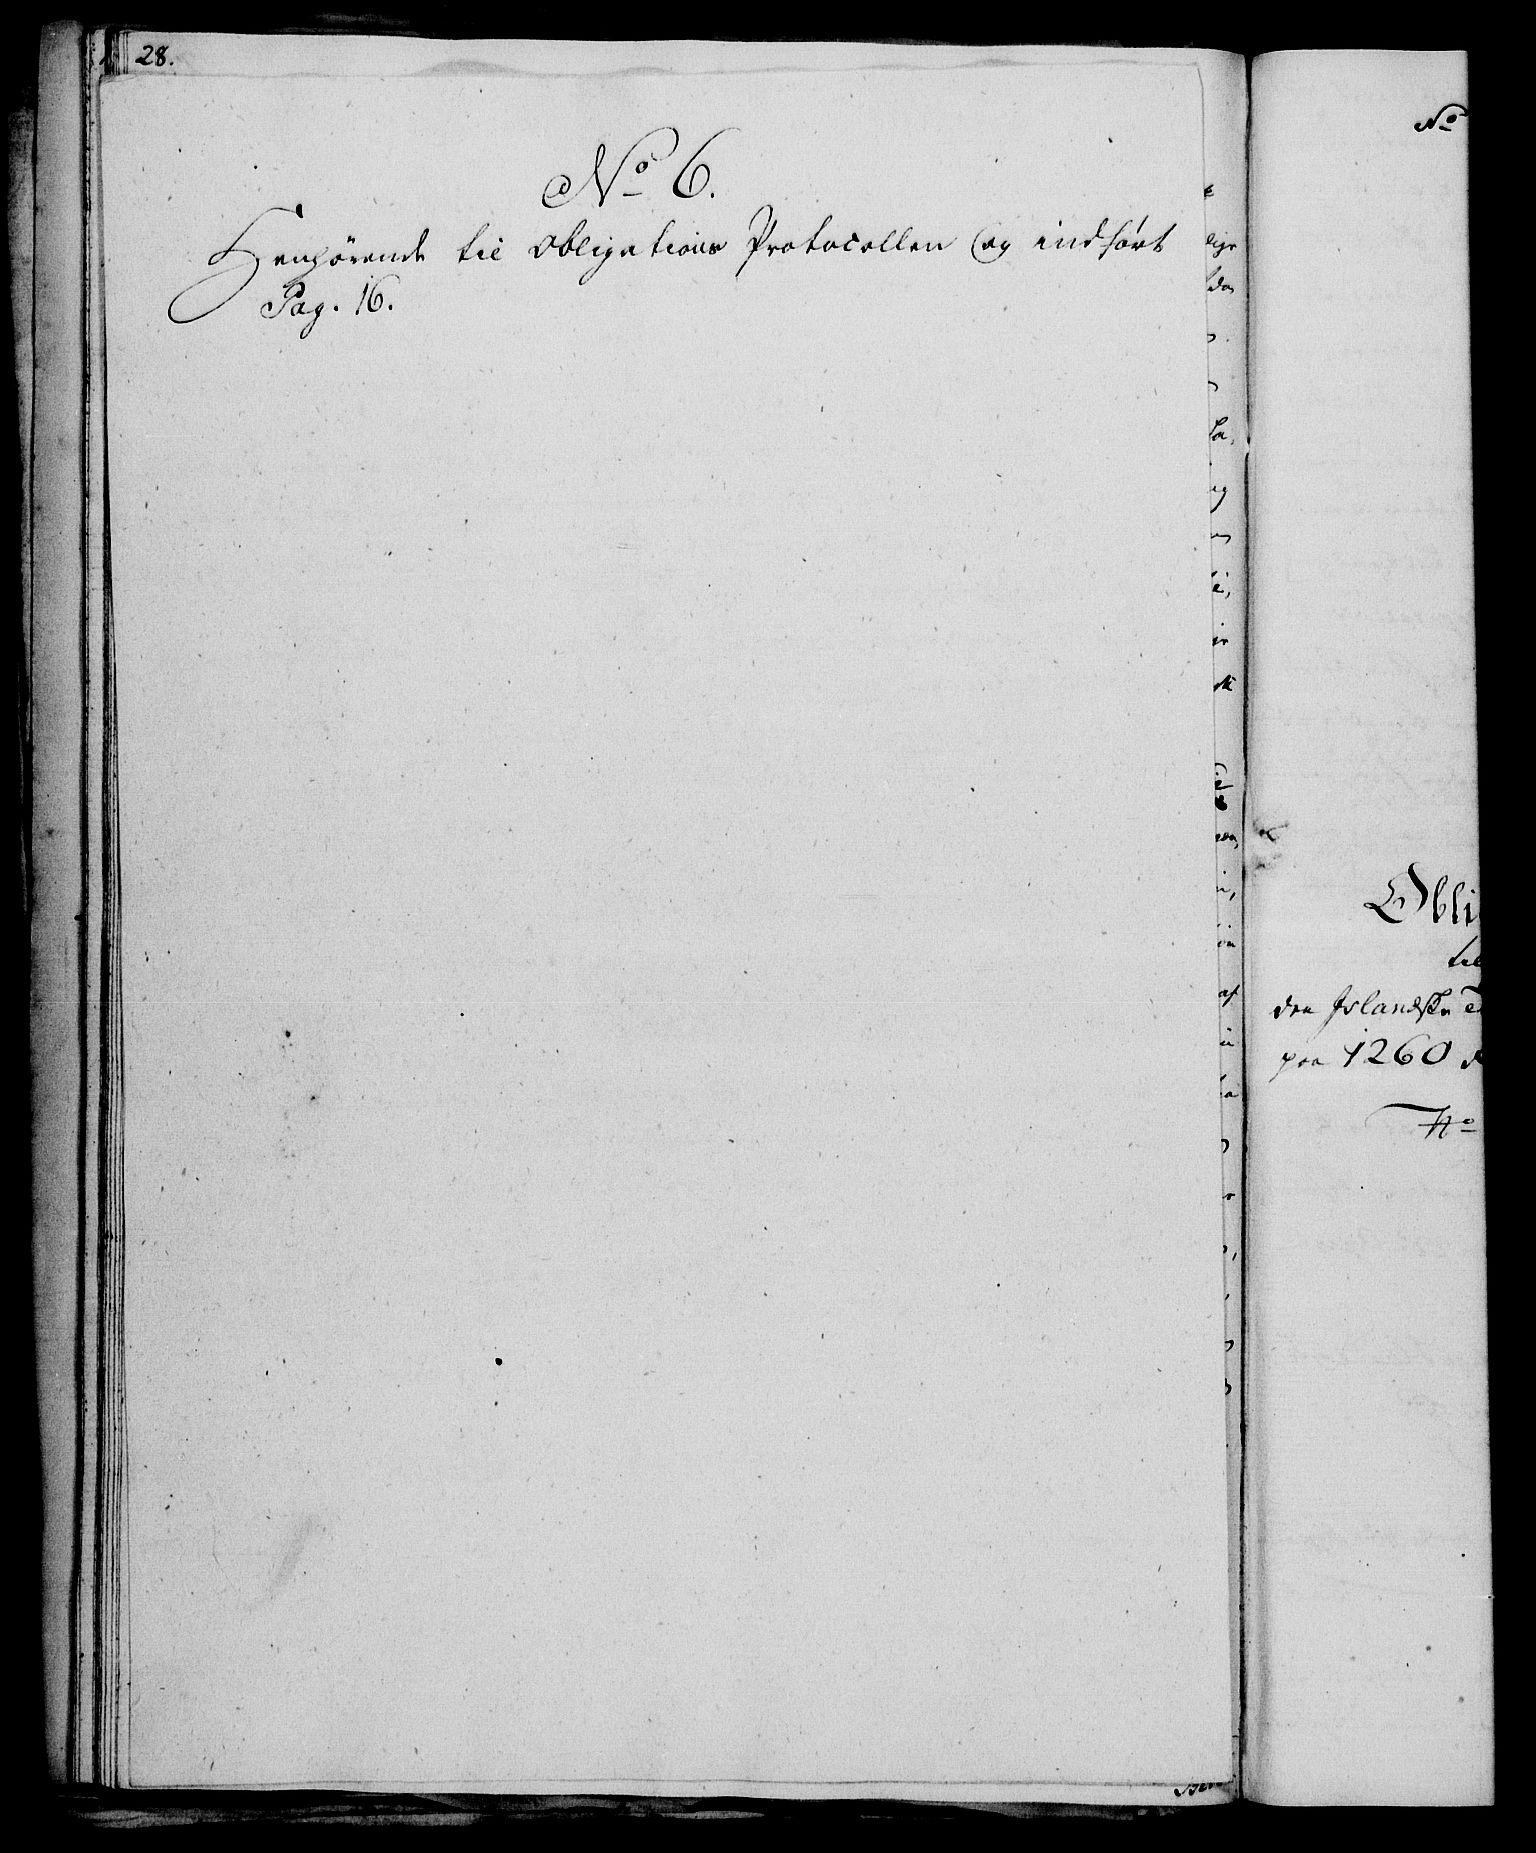 28.
No 6.
Henhörende til Obligations Protocollen og indfört
Pag. 16.
No
Obli
til
den Islandske
paa 1260
No